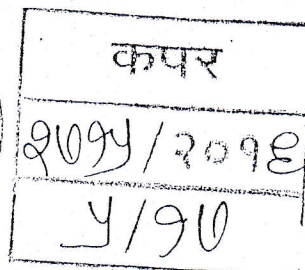 कपर
२७१५/२०१६
५/१७